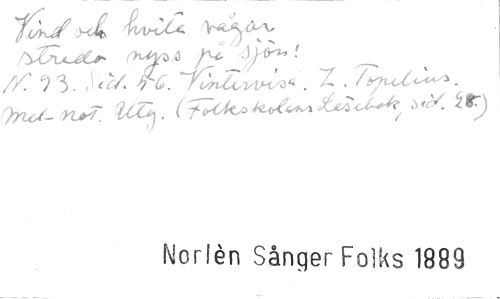 Vind och hvita vågor
streda nyss på sjön!
N. 93. Sid. 46. Vintervisa. Z. Topelius.
Mel-not. Utg. (Folkskolans Läsebok, sid. 28.)
Norlèn Sånger Folks 1889